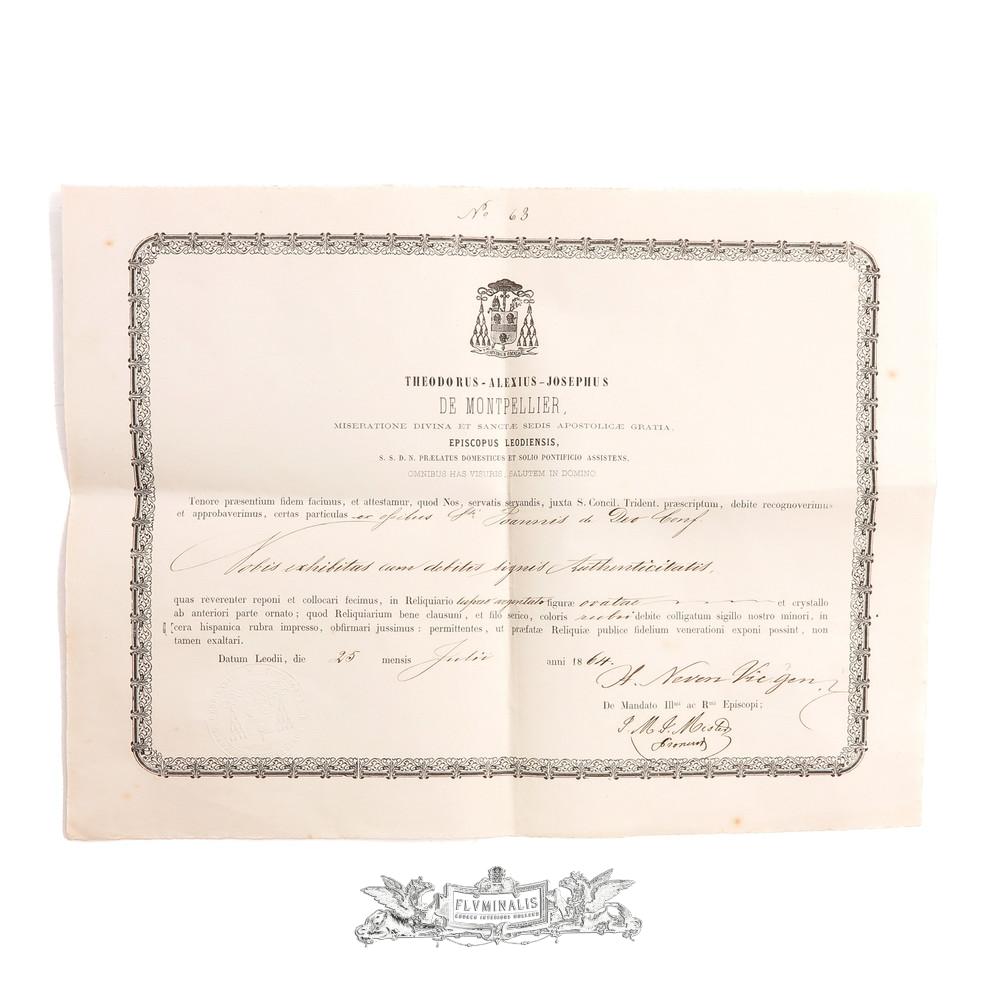 No 63
THEODORUS-ALEXIUS-JOSEPHUS
DE MONTPELLIER,
MISERATIONE DIVINA ET SANCTÆ SEDIS APOSTOLICÆ GRATIA,
EPISCOPUS LEODIENSIS,
S. S. D. N. PRÆLATUS DOMESTICUS ET SOLIO PONTIFICIO ASSISTENS,
OMNIBUS HAS VISURIS, SALUTEM IN DOMINO
Tenore præsentium fidem facimus, et attestamur, quod Nos, servatis servandis, juxta S. Concil. Trident. præscriptum, debite recognoverimus
et approbaverimus, certas particulas ex ossibus Sti Joannis de Deo Conf.
Nobis exhibitas cum debitis signis Authenticitatis,
quas reverenter reponi et collocari fecimus, in Reliquiario cupreo argentato figuræ ovatae et crystallo
ab anteriori parte ornato; quod Reliquiarium bene clausuni, et filo serico, coloris rubri debite colligatum sigillo nostro minori, in
cera hispanica rubra impresso, obfirmari jussimus : permittentes, ut præfatæ Reliquiæ publice fidelium venerationi exponi possint, non
tamen exaltari.
Datum Leodii, die 25 mensis Julii anni 1864.
H. Neven Vic gen.
De Mandato Illmi ac Rmi Episcopi;
J. M. J.
FLVMINALIS